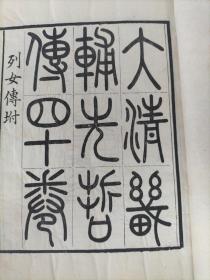 大清畿
輔先哲
傳四十卷
列女傳坿